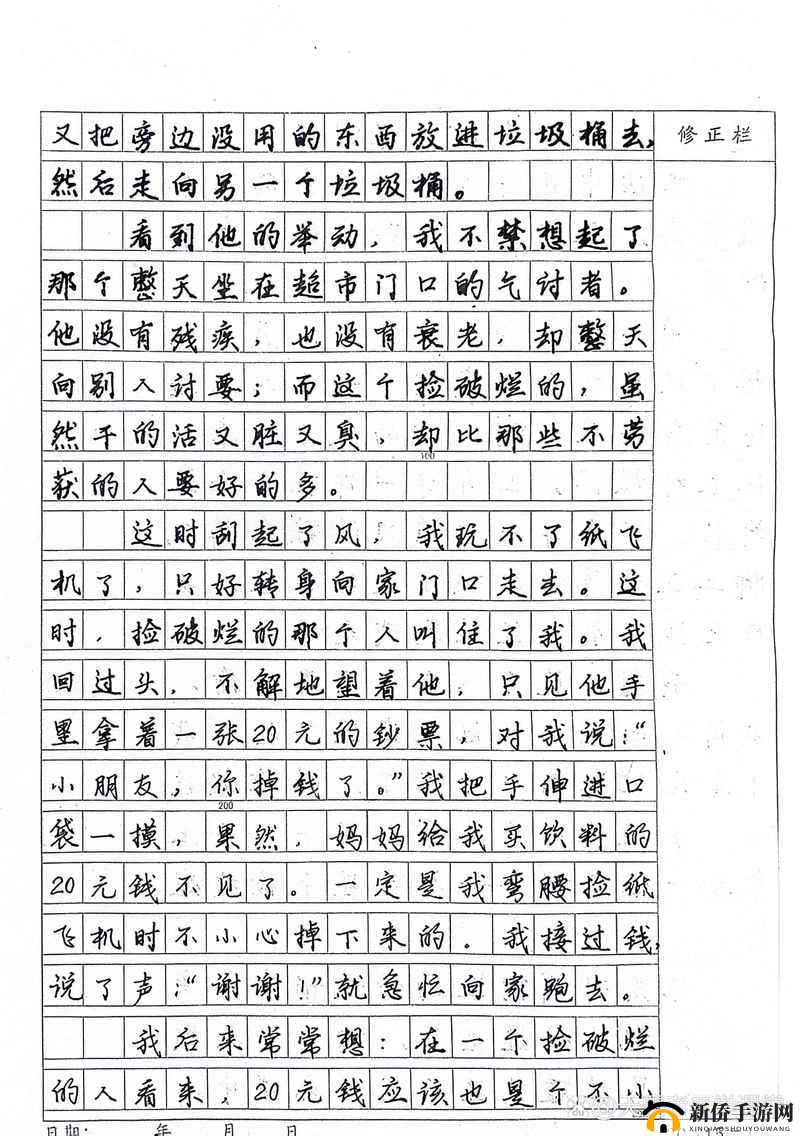 又把旁边没用的东西放进垃圾桶去,
修正栏
然后走向另一个垃圾桶。
看到他的举动，我不禁想起了
那个整天坐在超市门口的气讨者。
他没有残疾，也没有衰老，却整天
向别人讨要；而这个捡破烂的，虽
然干的活又脏又臭，却比那些不劳
100
获的人要好的多。
这时刮起了风，我玩不了纸飞
机了，只好转身向家门口走去。这
时，捡破烂的那个人叫住了我。我
回过头，不解地望着他，只见他手
里拿着一张20元的钞票，对我说：“
小朋友，你掉钱了。”我把手伸进口
200
袋一摸，果然，妈妈给我买饮料的
20元钱不见了。一定是我弯腰捡纸
飞机时不小心掉下来的。我接过钱,
说了声：“谢谢！”就急忙向家跑去。
我后来常常想：在一个捡破烂
的人看来，20元钱应该也是个不小
日期： 年 月 日
新侨手游网
XINQIAOSHOUYOUWANG